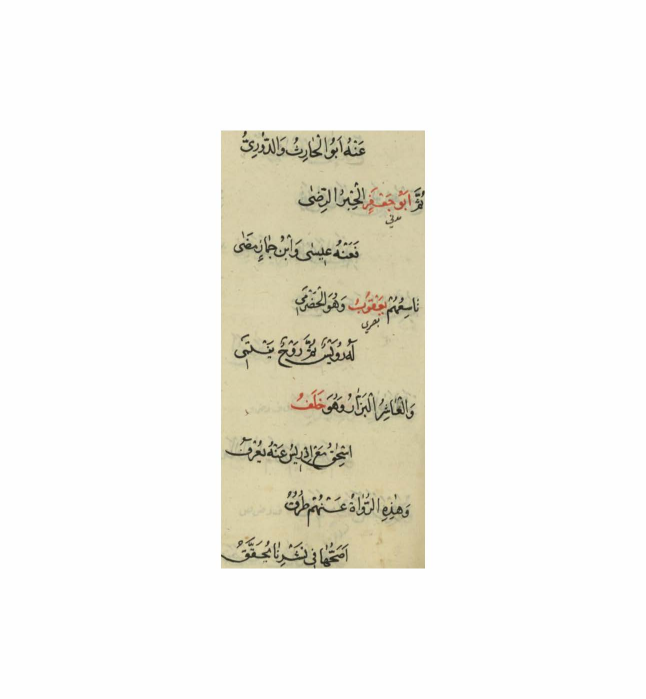 عَنْهُ اَبُو الْحَارِثِ وَالدُّورِيُّ
ثُمَّ اَبُو جَعْفَرٍ الْحِبْرُ الرِّضٰى
مدنى
فَعَنْهُ عِيسٰى وَابْنُ جَمَّازٍ مَضٰى
تَاسِعُهُمْ يَعْقُوبُ وَهُوَ الْحَضْرَمِي
بصرى
لَهُ رُوَيْسٌ ثُمَّ رَوْحٌ يَنْتَمِي
وَالْعَاشِرُ الْبَزَّارُ وَهُوَ خَلَفُ
اِسْحٰقُ مَعْ اِدْرِيسَ عَنْهُ يُعْرَفُ
وَهٰذِهِ الرُّوَاةُ عَنْهُمْ طُرُقُ
اَصَحُّهَا فِي نَشْرِنَا يُحَقَّقُ